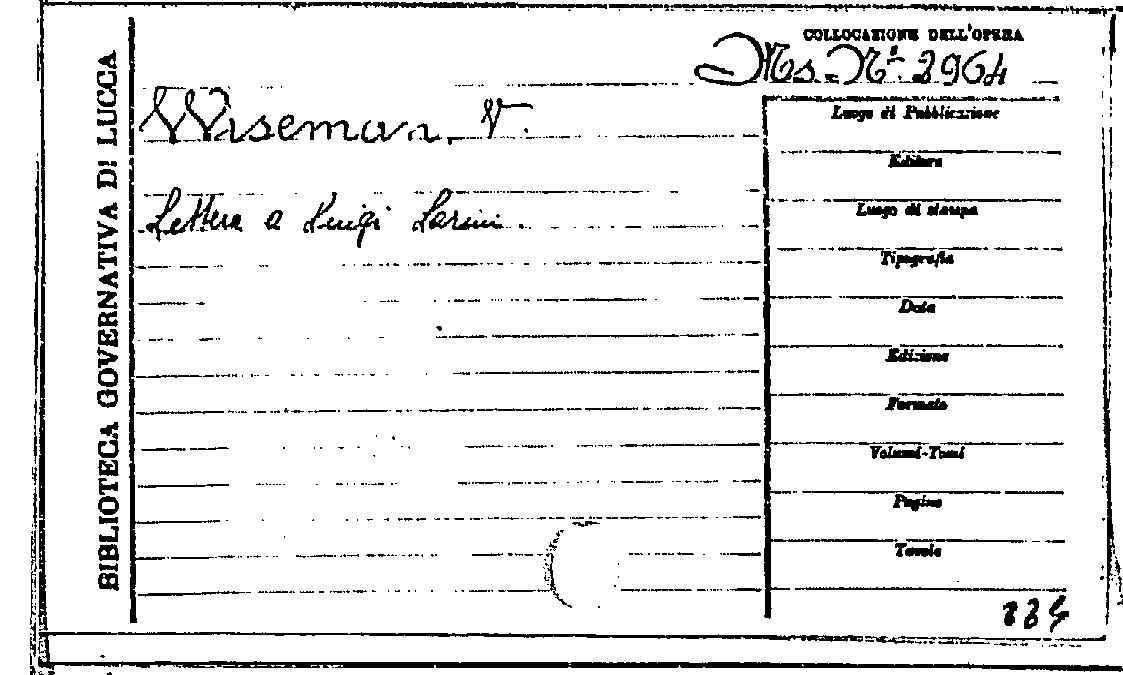 BIBLIOTECA GOVERNATIVA DI LUCCA
COLLOCAZIONE DELL'OPERA
Ms. N° 2964
Wiseman. V.
Lettera a Luigi
Luogo di Pubblicazione
Editore
Luogo di stampa
Tipografia
Data
Edizione
Formato
Volumi-Tomi
Pagine
Tavole